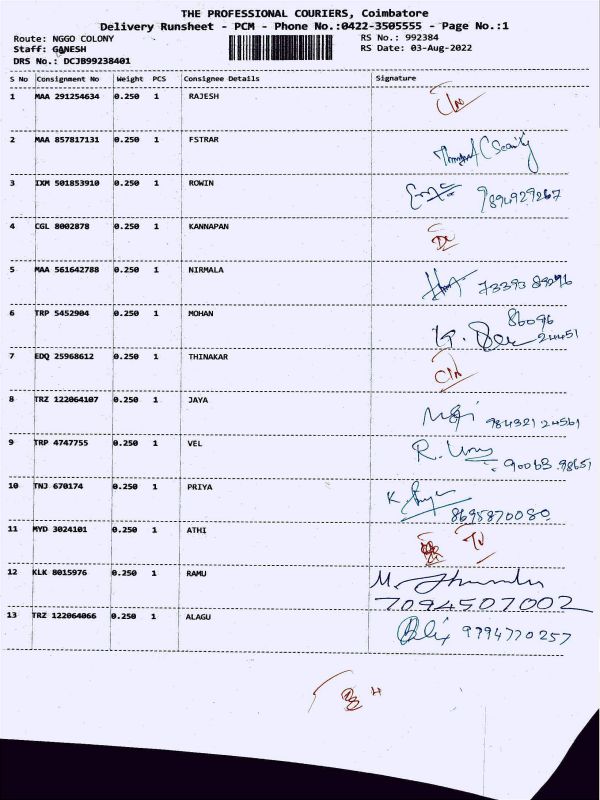 THE PROFESSIONAL COURIERS, Coimbatore
Delivery Runsheet - PCM - Phone No.:0422-3505555 - Page No.:1
Route: NGGO COLONY
RS No.: 992384
Staff: GANESH
RS Date: 03-Aug-2022
DRS No.: DCJB99238401
S No Consignment No Weight PCS Consignee Details Signature
1 MAA 291254634 0.250 1 RAJESH
2 MAA 857817131 0.250 1 FSTRAR
3 IXM 501853910 0.250 1 ROWIN 9894929267
4 CGL 8002878 0.250 1 KANNAPAN
5 MAA 561642788 0.250 1 NIRMALA
6 TRP 5452904 0.250 1 MOHAN 86096
24451
7 EDQ 25968612 0.250 1 THINAKAR
8 TRZ 122064107 0.250 1 JAYA
9 TRP 4747755 0.250 1 VEL 90063 98651
10 TNJ 670174 0.250 1 PRIYA
8695870080
11 MYD 3024101 0.250 1 ATHI
12 KLK 8015976 0.250 1 RAMU
7094507002
13 TRZ 122064066 0.250 1 ALAGU 9994770257